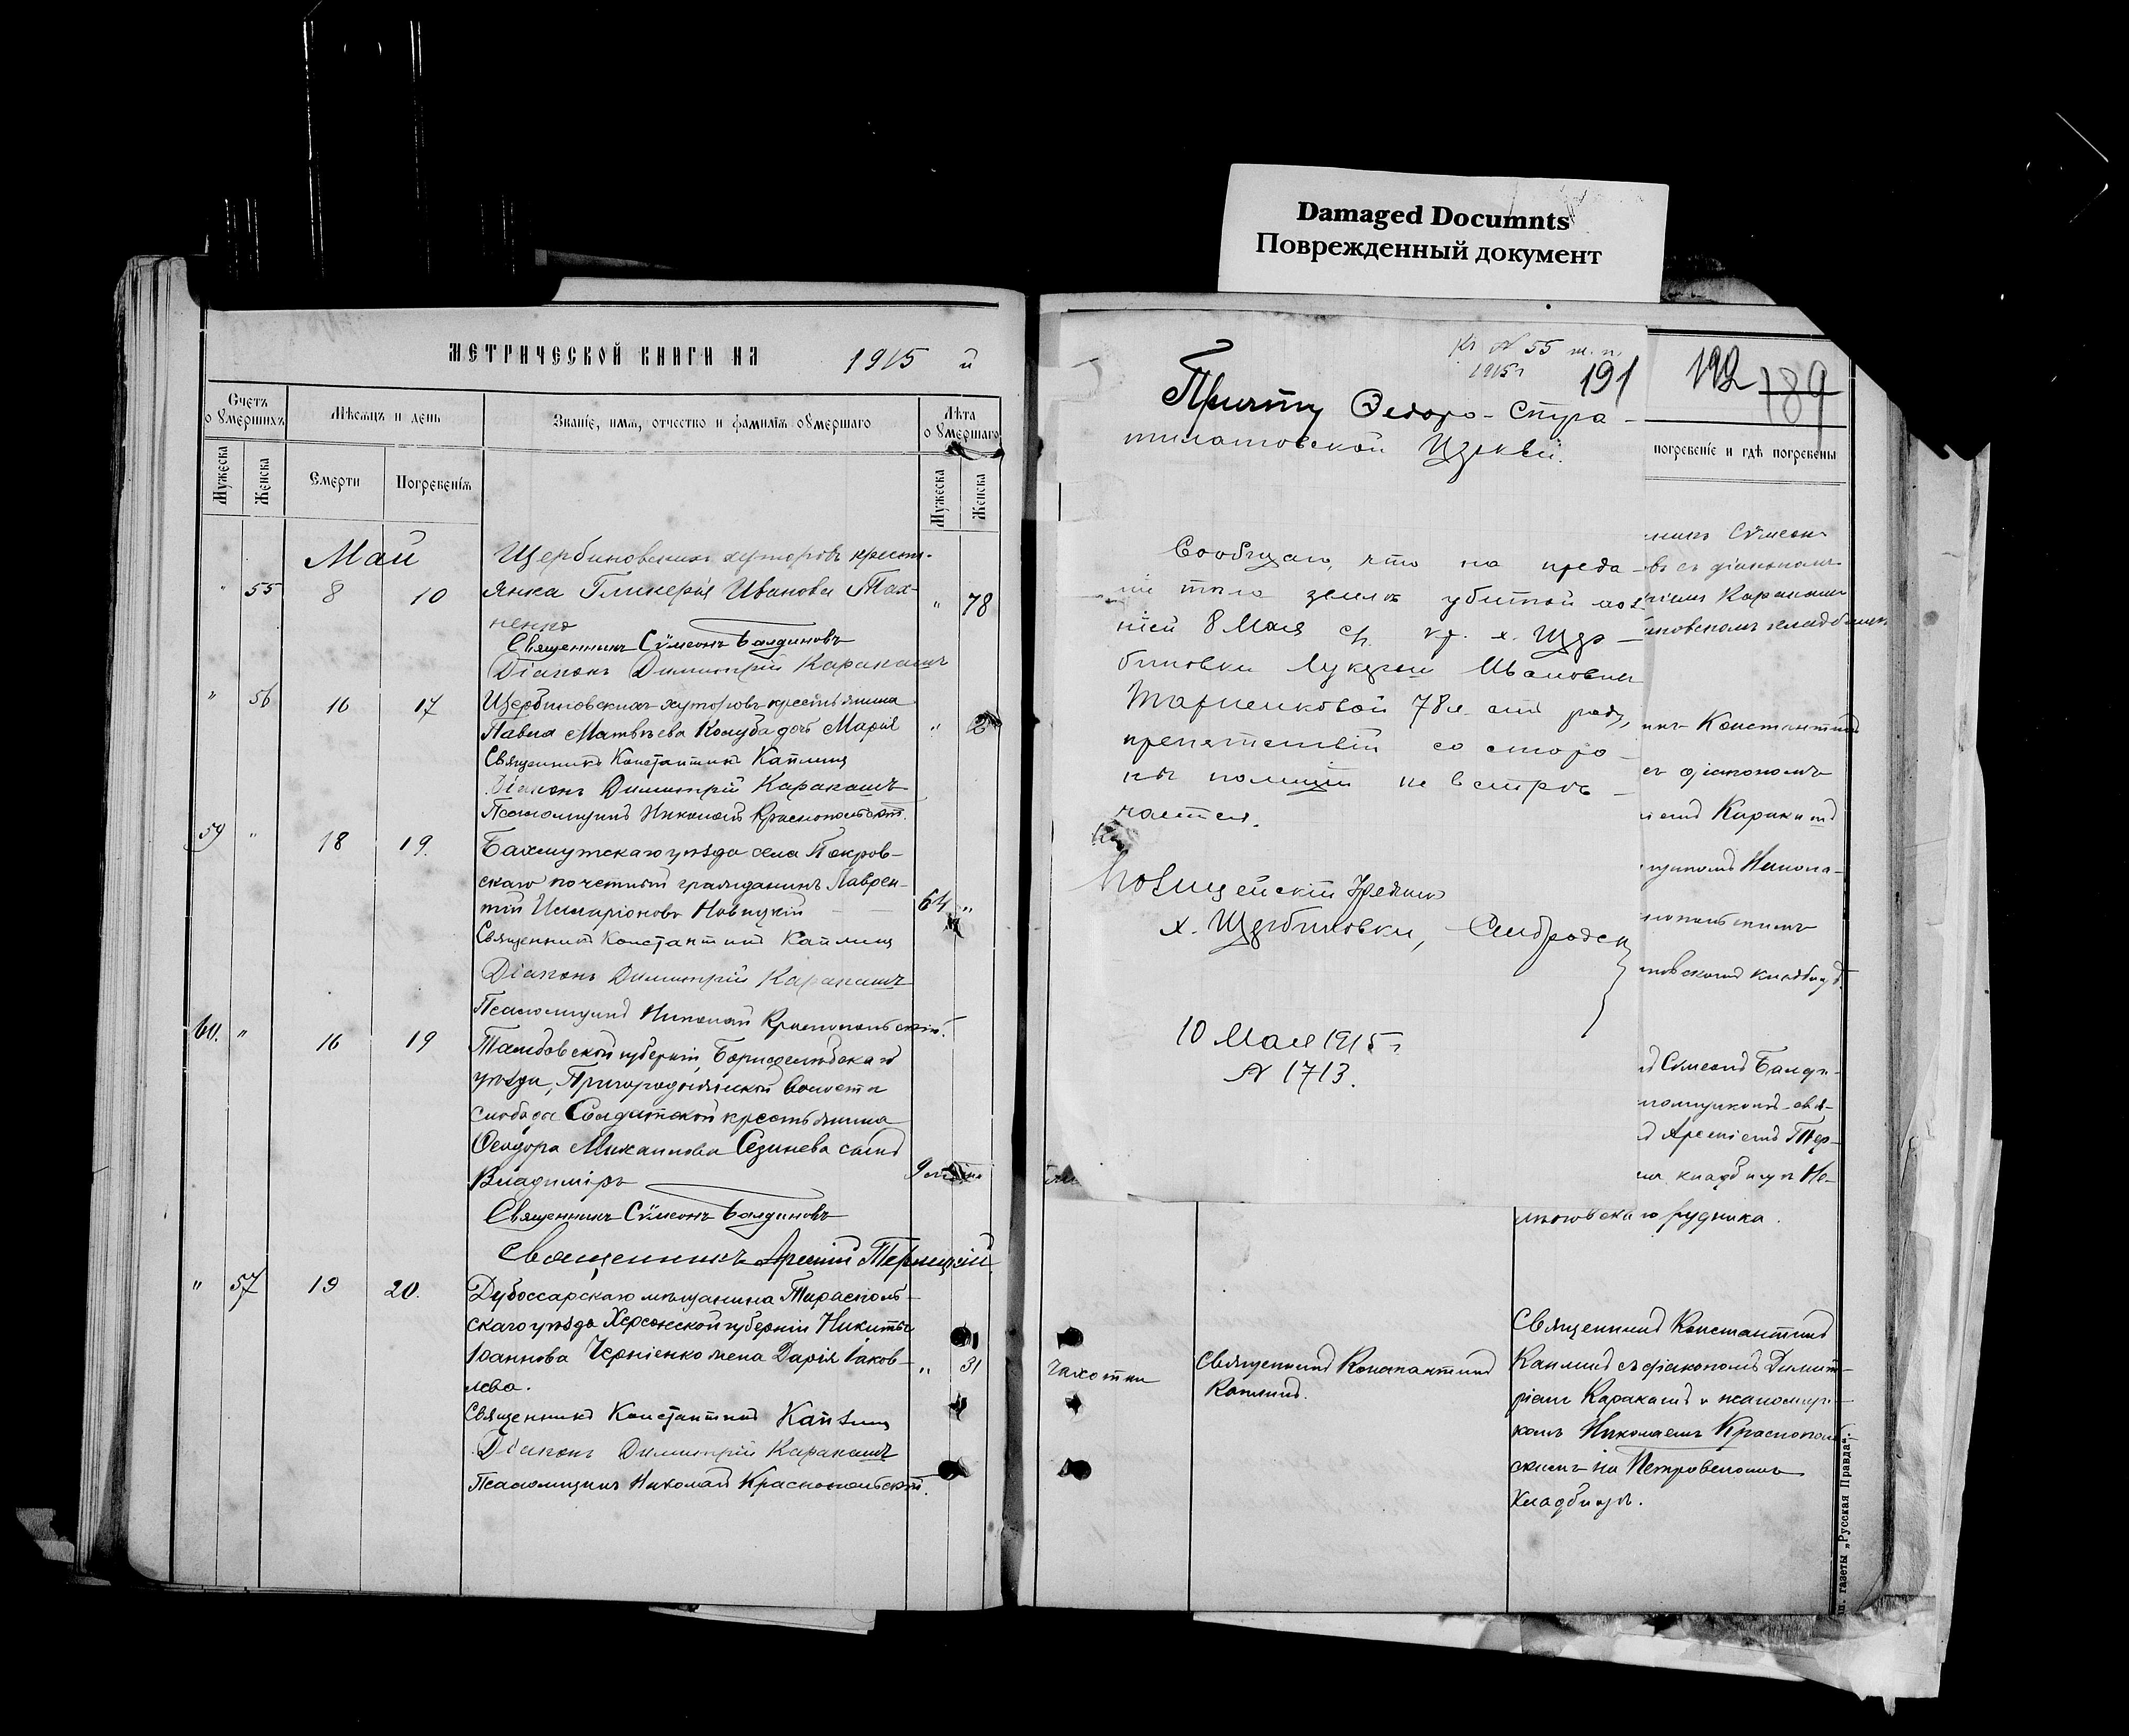 Damaged Documnts
Поврежденный документ
МЕТРИЧЕСКОЙ КНИГИ НА 1915 й
Счетъ
о умершихъ
Мѣсяцъ и день
Званіе, имя, отчество и фамилія умершаго
Лѣта
о умершаго
Мужеска
Женска
Смерти
Погребенія
Мужеска
Женска
Май
Щербиновскихъ хуторовъ кресть-
" 55 8 10 янка Гликерія Иванова Тах- " 78
ненко
Священникъ Сѵмеонъ Балдиновъ
Діаконъ Димитрій Каракашъ
" 56 16 17 Щербиновскихъ хуторовъ крестьянина
Павла Матвѣева Колуба дочь Марія " 2
Священникъ Константинъ Каплинъ
Діаконъ Димитрій Каракашъ
Псаломщикъ Николай Краснопольскій.
59 " 18 19. Бахмутскаго уѣзда села Покров-
скаго почетный гражданинъ Лаврен-
тій Иларіоновъ Новицкій 64 "
Священникъ Константинъ Каплинъ
Діаконъ Димитрій Каракашъ
Псаломщикъ Николай Краснопольскій.
60. " 16 19 Тамбовской губерніи, Борисоглѣбскаго
уѣзда, Пригородн волости
слобода Солдатской крестьянина
Ѳеодора Михаилова сынъ
Владиміръ 9
Священникъ Сѵмеонъ Балдиновъ
Священникъ Арсеній Терницкій.
" 57 19 20. Дубоссарскаго мѣщанина Тирасполь-
скаго уѣзда Херсонской губерніи Никиты
Іоаннова Черніенко жена Дарія Іаков- " 31
лева.
Священникъ Константинъ Каплинъ
Діаконъ Димитрій Каракашъ
Псаломщикъ Николай Краснопольскій.
Къ № 55 ж. п.
1915 г
191
Причту Ѳедоро-Стра-
тилатовской Церкви.
Сообщаю, что на преда-
ніе тѣла землѣ убитой
ніей 8 Мая с/г. кр. х. Щер-
биновки Лукеріи Ивановны
Тахненковой 78 л. отъ роду,
препятствій со сторо-
ны полиціи не встрѣ-
чается.
Полицейскій Урядник
х. Щербиновки,
10 Мая 1915 г
№ 1713.
192 189
погребеніе и гдѣ погребены
никъ Сѵмеонъ
въ съ діакономъ
ріемъ Каракашъ
новскомъ кладбищѣ
никъ Константинъ
съ діакономъ
ріемъ Каракашъ
щикомъ Никола-
нопольскимъ
новскомъ кладбищѣ.
ъ Сѵмеонъ Балди-
ломщикомъ-свя-
ъ Арсеніемъ Тер-
на кладбищѣ Не-
лѣповскаго рудника.
Священникъ Константинъ
чахотки Священникъ Константинъ Каплинъ съ діакономъ Димит-
Каплинъ. ріемъ Каракашъ и псаломщи-
комъ Николаемъ Краснополь-
скимъ на Петровскомъ
кладбищѣ.
газеты „Русская Правда".